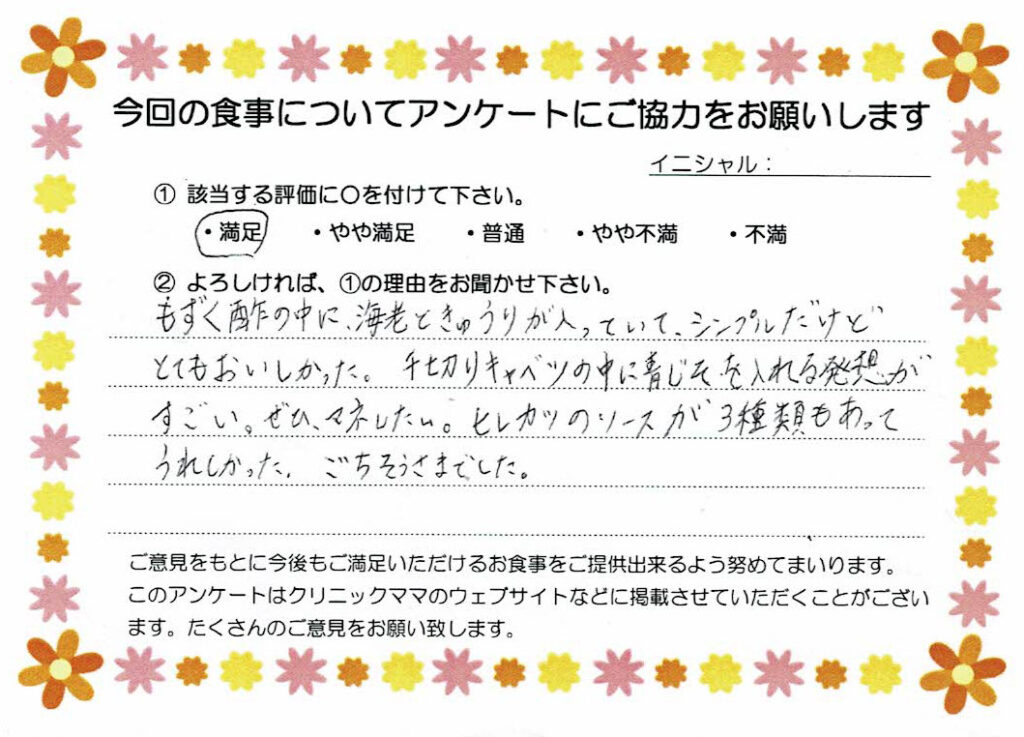 今回の食事についてアンケートにご協力をお願いします
イニシャル：
① 該当する評価に〇を付けて下さい。
・満足 ・やや満足 ・普通 ・やや不満 ・不満
② よろしければ、①の理由をお聞かせ下さい。
もずく酢の中に、海老ときゅうりが入っていて、シンプルだけど
とてもおいしかった。千切りキャベツの中に青じそを入れる発想が
すごい。ぜひ、マネしたい。ヒレカツのソースが3種類もあって
うれしかった。ごちそうさまでした。
ご意見をもとに今後もご満足いただけるお食事をご提供出来るよう努めてまいります。
このアンケートはクリニックママのウェブサイトなどに掲載させていただくことがござい
ます。たくさんのご意見をお願い致します。